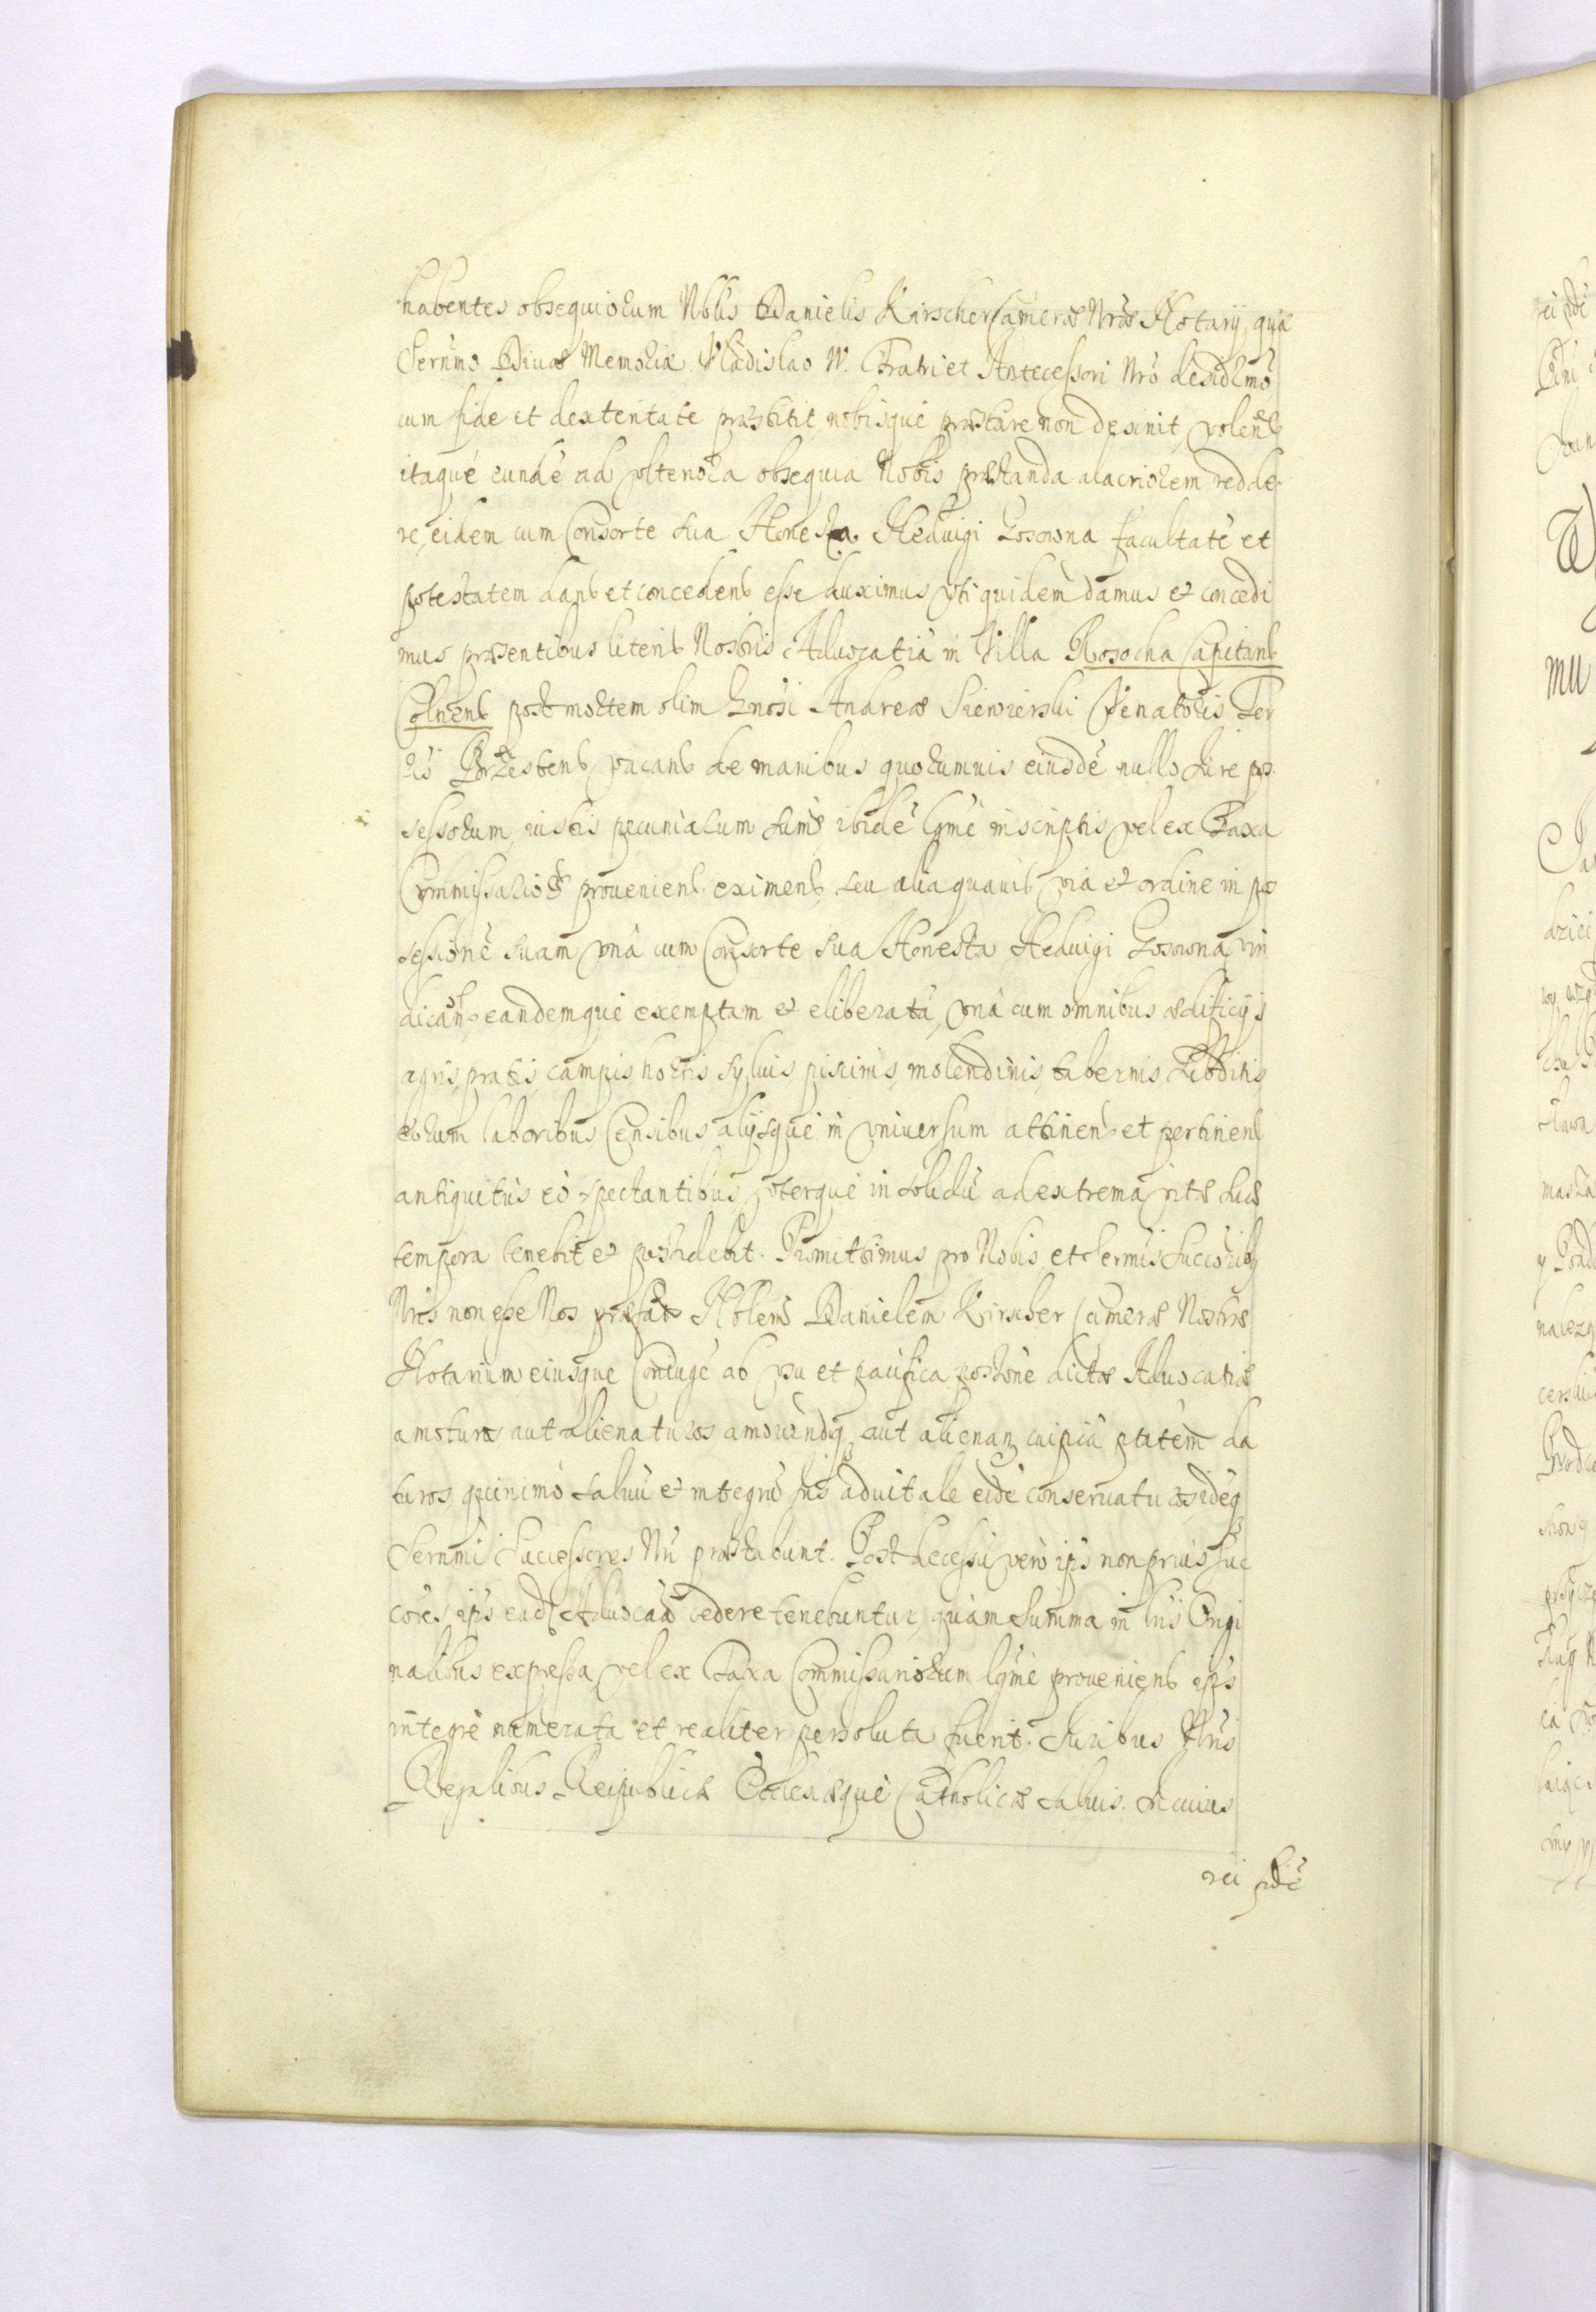 habentes obsequiorum Nblis Danielis Kirscher Cameræ Nræ Notarij, quæ
Sermo Diuæ Memoriæ Vladislao IV. Fratri et Antecessori Nro desidmo
cum fide et dexteritate præstitit, nobisque præstare non desinit, volens
itaque eundē ad vlteriora obsequia Nobis præstanda alacriorem redde-
re, eidem cum Consorte sua Honesta Heduigi Gosowna facultatē et
potestatem dand et concedend esse duximus, vti quidem damus et concedi
mus præsentibus literis Nostris Aduocatiā in Villa Rosocha Capitant
Colnens post mortem olim Gnosi Andreæ Siewierski Venatoris Ter
ris Brzestens vacant de manibus quorumuis eiusdē nullo Iure pos
sessorum, iustis pecuniarum sumis ibidē lgme inscriptis, vel ex Taxa
Commissarior prouenient eximend, seu alia quauis via et ordine in pos
sessionē suam vnà cum Consorte sua Honesta Heduigi Gosowna vin
dicand, eandemque exemptam et eliberatā, vnà cum omnibus ædificijs
agris, pratis, campis, hortis, syluis, piscinis, molendinis, tabernis, Sbditis,
eorum laboribus, Censibus, alijsque in vniuersum attinen et pertinen
antiquitus eò spectantibus, vterque in solidū ad extrema vitæ suæ
tempora tenebit et possidebit. Promittimus pro Nobis, et Sermis Succoribq
Nris non esse Nos præfat Nblem Danielem Kirscher Cameræ Nostræ
Notarium eiusque Coniugē ab vsu et pacifica possione dictæ Aduocatiæ
amoturos aut alienaturos amouendiq aut alienan cuipiā ptatem da
turos, quinimò saluū et integrū Ius aduitale eidē conseruaturos, idēq
Sernmi Successores Nri præstabunt. Post decessū verò ipsi non prius suc
cores ipsi ead Aduocaō cedere tenebuntur, quàm summa in lris Origi
nalibus expressa, vel ex Taxa Commissariorum lgme prouenient ipsis
integrè numerata et realiter persoluta fuerit. Iuribus Nris
Regalibus Reipublicæ Ecclesiæque Catholicæ saluis. In cuius
rei fidē